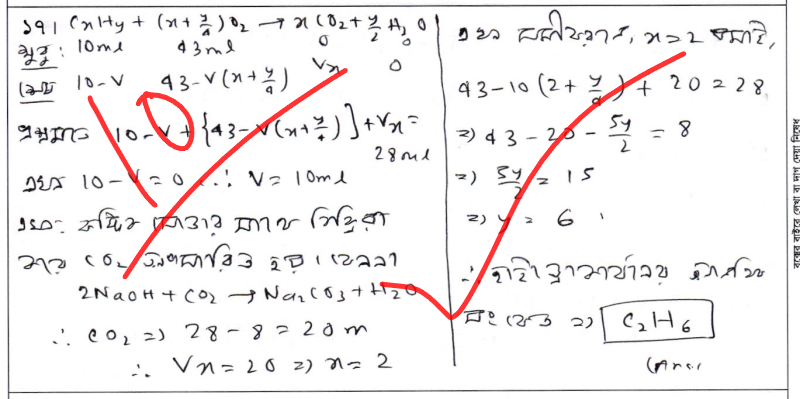 ১৭। CxHy + (x + y/4) O2 → x CO2 + y/2 H2O
শুরু: 10ml 43ml 0 0
শেষ 10-V 43-V(x + y/4) Vx 0
প্রশ্নমতে 10-V + {43-V(x + y/4)} + Vx =
28ml
এখন 10-V = 0 ∴ V = 10ml
কস্টিক সোডার সাথে বিক্রিয়া
CO2 অপসারিত হয়। কেননা
2NaOH + CO2 → Na2CO3 + H2O
∴ CO2 ⇒ 28-8 = 20 m
∴ Vx = 20 ⇒ x = 2
এখন সমীকরণে, x = 2 বসাই,
43-10(2 + y/4) + 20 = 28
⇒ 43-20 - 5y/2 = 8
⇒ 5y/2 = 15
⇒ y = 6
∴ হাইড্রোকার্বনের আণবিক
সংকেত ⇒ C2H6
(Ans:
10
বক্সের বাইরে লেখা বা দাগ দেয়া নিষেধ